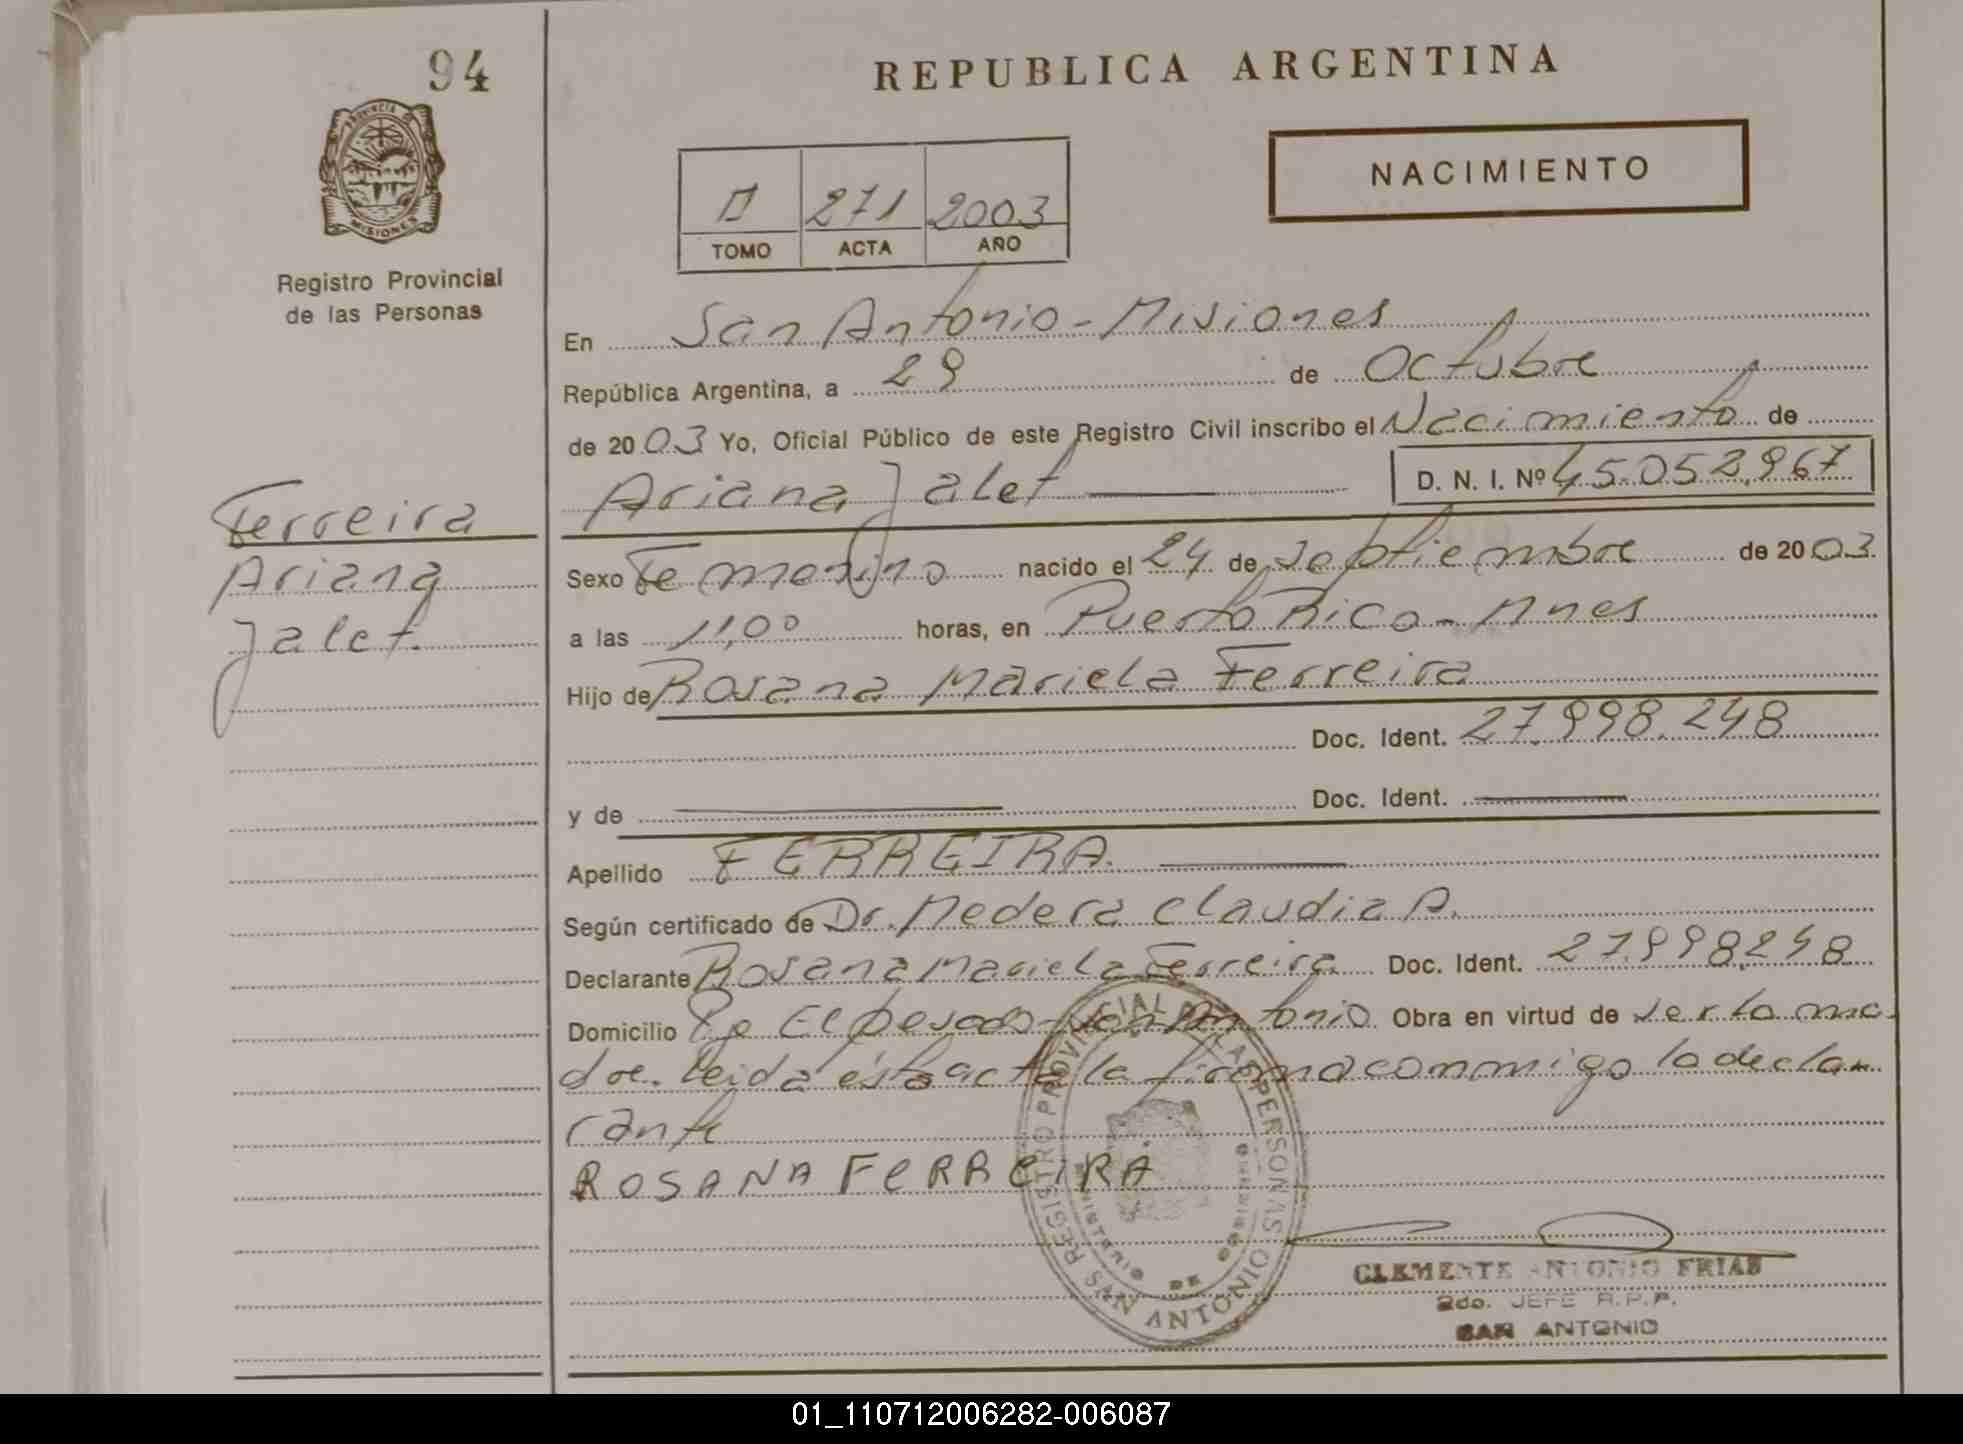 94
REPUBLICA ARGENTINA
PROVINCIA DE
MISIONES
NACIMIENTO
II 271 2003
TOMO ACTA AÑO
Registro Provincial
de las Personas
En San Antonio - Misiones
República Argentina, a 29 de Octubre
de 2003 Yo, Oficial Público de este Registro Civil inscribo el Nacimiento de
Ariana Jalet D. N. I. Nº 45.052.967
Ferreira
Ariana
Jalet.
Sexo Femenino nacido el 24 de Septiembre de 2003.
a las 11,00 horas, en Puerto Rico - Mnes
Hijo de Rosana Mariela Ferreira
Doc. Ident. 27.998.248
y de Doc. Ident.
Apellido FERREIRA.
Según certificado de Dr. Medera Claudia A.
Declarante Rosana Mariela Ferreira Doc. Ident. 27.998.248
Domicilio Pje El pesado - San Antonio Obra en virtud de ser la ma-
dre. Leida ésta acta la firma conmmigo la decla-
rante
ROSANA FERREIRA
REGISTRO PROVINCIAL DE LAS PERSONAS
MINISTERIO DE GOBIERNO
SAN ANTONIO
CLEMENTE ANTONIO FRIAS
2do. JEFE R.P.P.
SAN ANTONIO
01_110712006282-006087